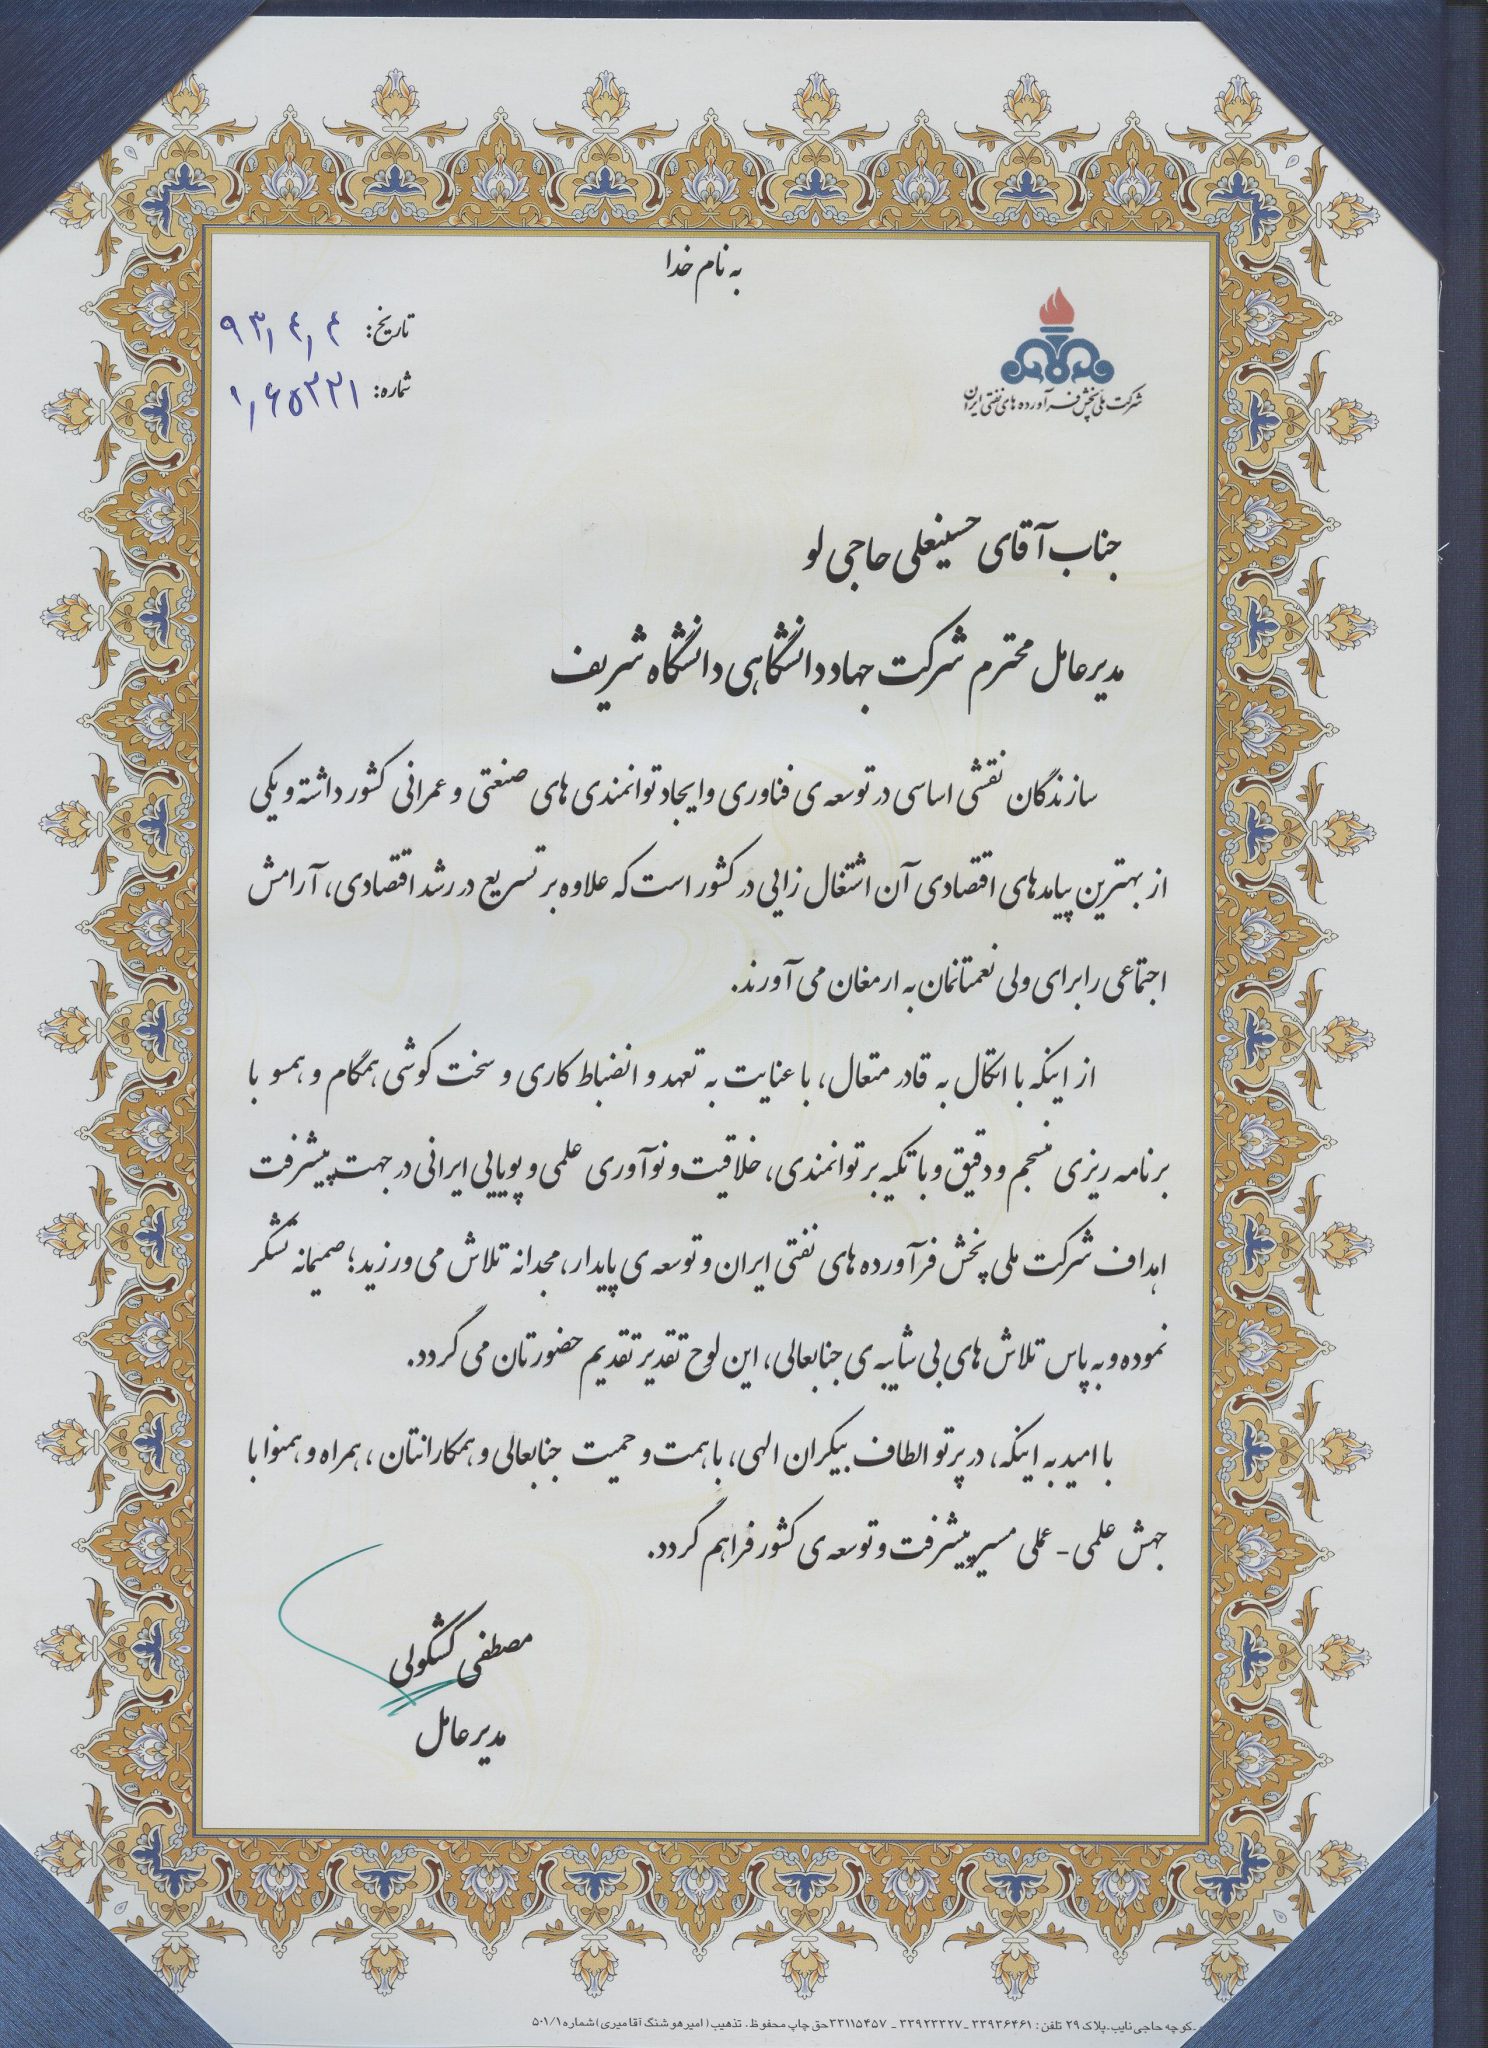 به نام خدا
شرکت ملی پخش فرآورده های نفتی ایران
تاریخ: ۹۳,۴,۴
شماره: ۱,۶۵۲۲۱
جناب آقای حسینعلی حاجی لو
مدیرعامل محترم شرکت جهاد دانشگاهی دانشگاه شریف
سازندگان نقشی اساسی در توسعه ی فناوری و ایجاد توانمندی های صنعتی و عمرانی کشور داشته و یکی
از بهترین پیامدهای اقتصادی آن اشتغال زایی در کشور است که علاوه بر تسریع در رشد اقتصادی، آرامش
اجتماعی را برای ولی نعمتانمان به ارمغان می آورند.
از اینکه با اتکال به قادر متعال، با عنایت به تعهد و انضباط کاری و سخت کوشی همگام و همسو با
برنامه ریزی منسجم و دقیق و با تکیه بر توانمندی، خلاقیت و نوآوری علمی و پویایی ایرانی در جهت پیشرفت
اهداف شرکت ملی پخش فرآورده های نفتی ایران و توسعه ی پایدار، مجدانه تلاش می ورزید؛ صمیمانه تشکر
نموده و به پاس تلاش های بی شایبه ی جنابعالی، این لوح تقدیر تقدیم حضورتان می گردد.
با امید به اینکه، در پرتو الطاف بیکران الهی، با همت و حمیت جنابعالی و همکارانتان، همراه و همنوا با
جهش علمی - عملی مسیر پیشرفت و توسعه ی کشور فراهم گردد.
مصطفی کشکولی
مدیر عامل
کوچه حاجی نایب-پلاک ۲۹ تلفن: ۳۳۹۳۶۴۶۱ - ۳۳۹۲۳۳۲۷ - ۳۳۱۱۵۴۵۷ حق چاپ محفوظ. تذهیب (امیرهوشنگ آقامیری) شماره ۵۰۱/۱